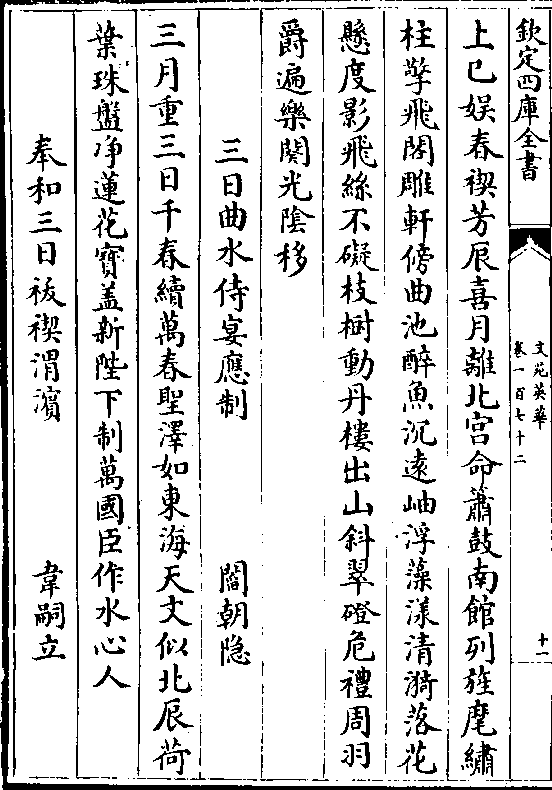 欽定四庫全書
文苑英華
卷一百七十二
十一
上巳娱春禊芳辰喜月離北宫命蕭鼓南館列旌麾繡
柱擎飛閣雕軒傍曲池醉魚沉遠岫浮藻漾清漪落花
懸度影飛絲不礙枝樹動丹樓出山斜翠磴危禮周羽
爵遍樂闋光陰移
三日曲水侍宴應制　閻朝隐
三月重三日千春續萬春聖澤如東海天文似北辰荷
葉珠盤净蓮花寶盖新陛下制萬國臣作水心人
奉和三日祓禊渭濱　韋嗣立